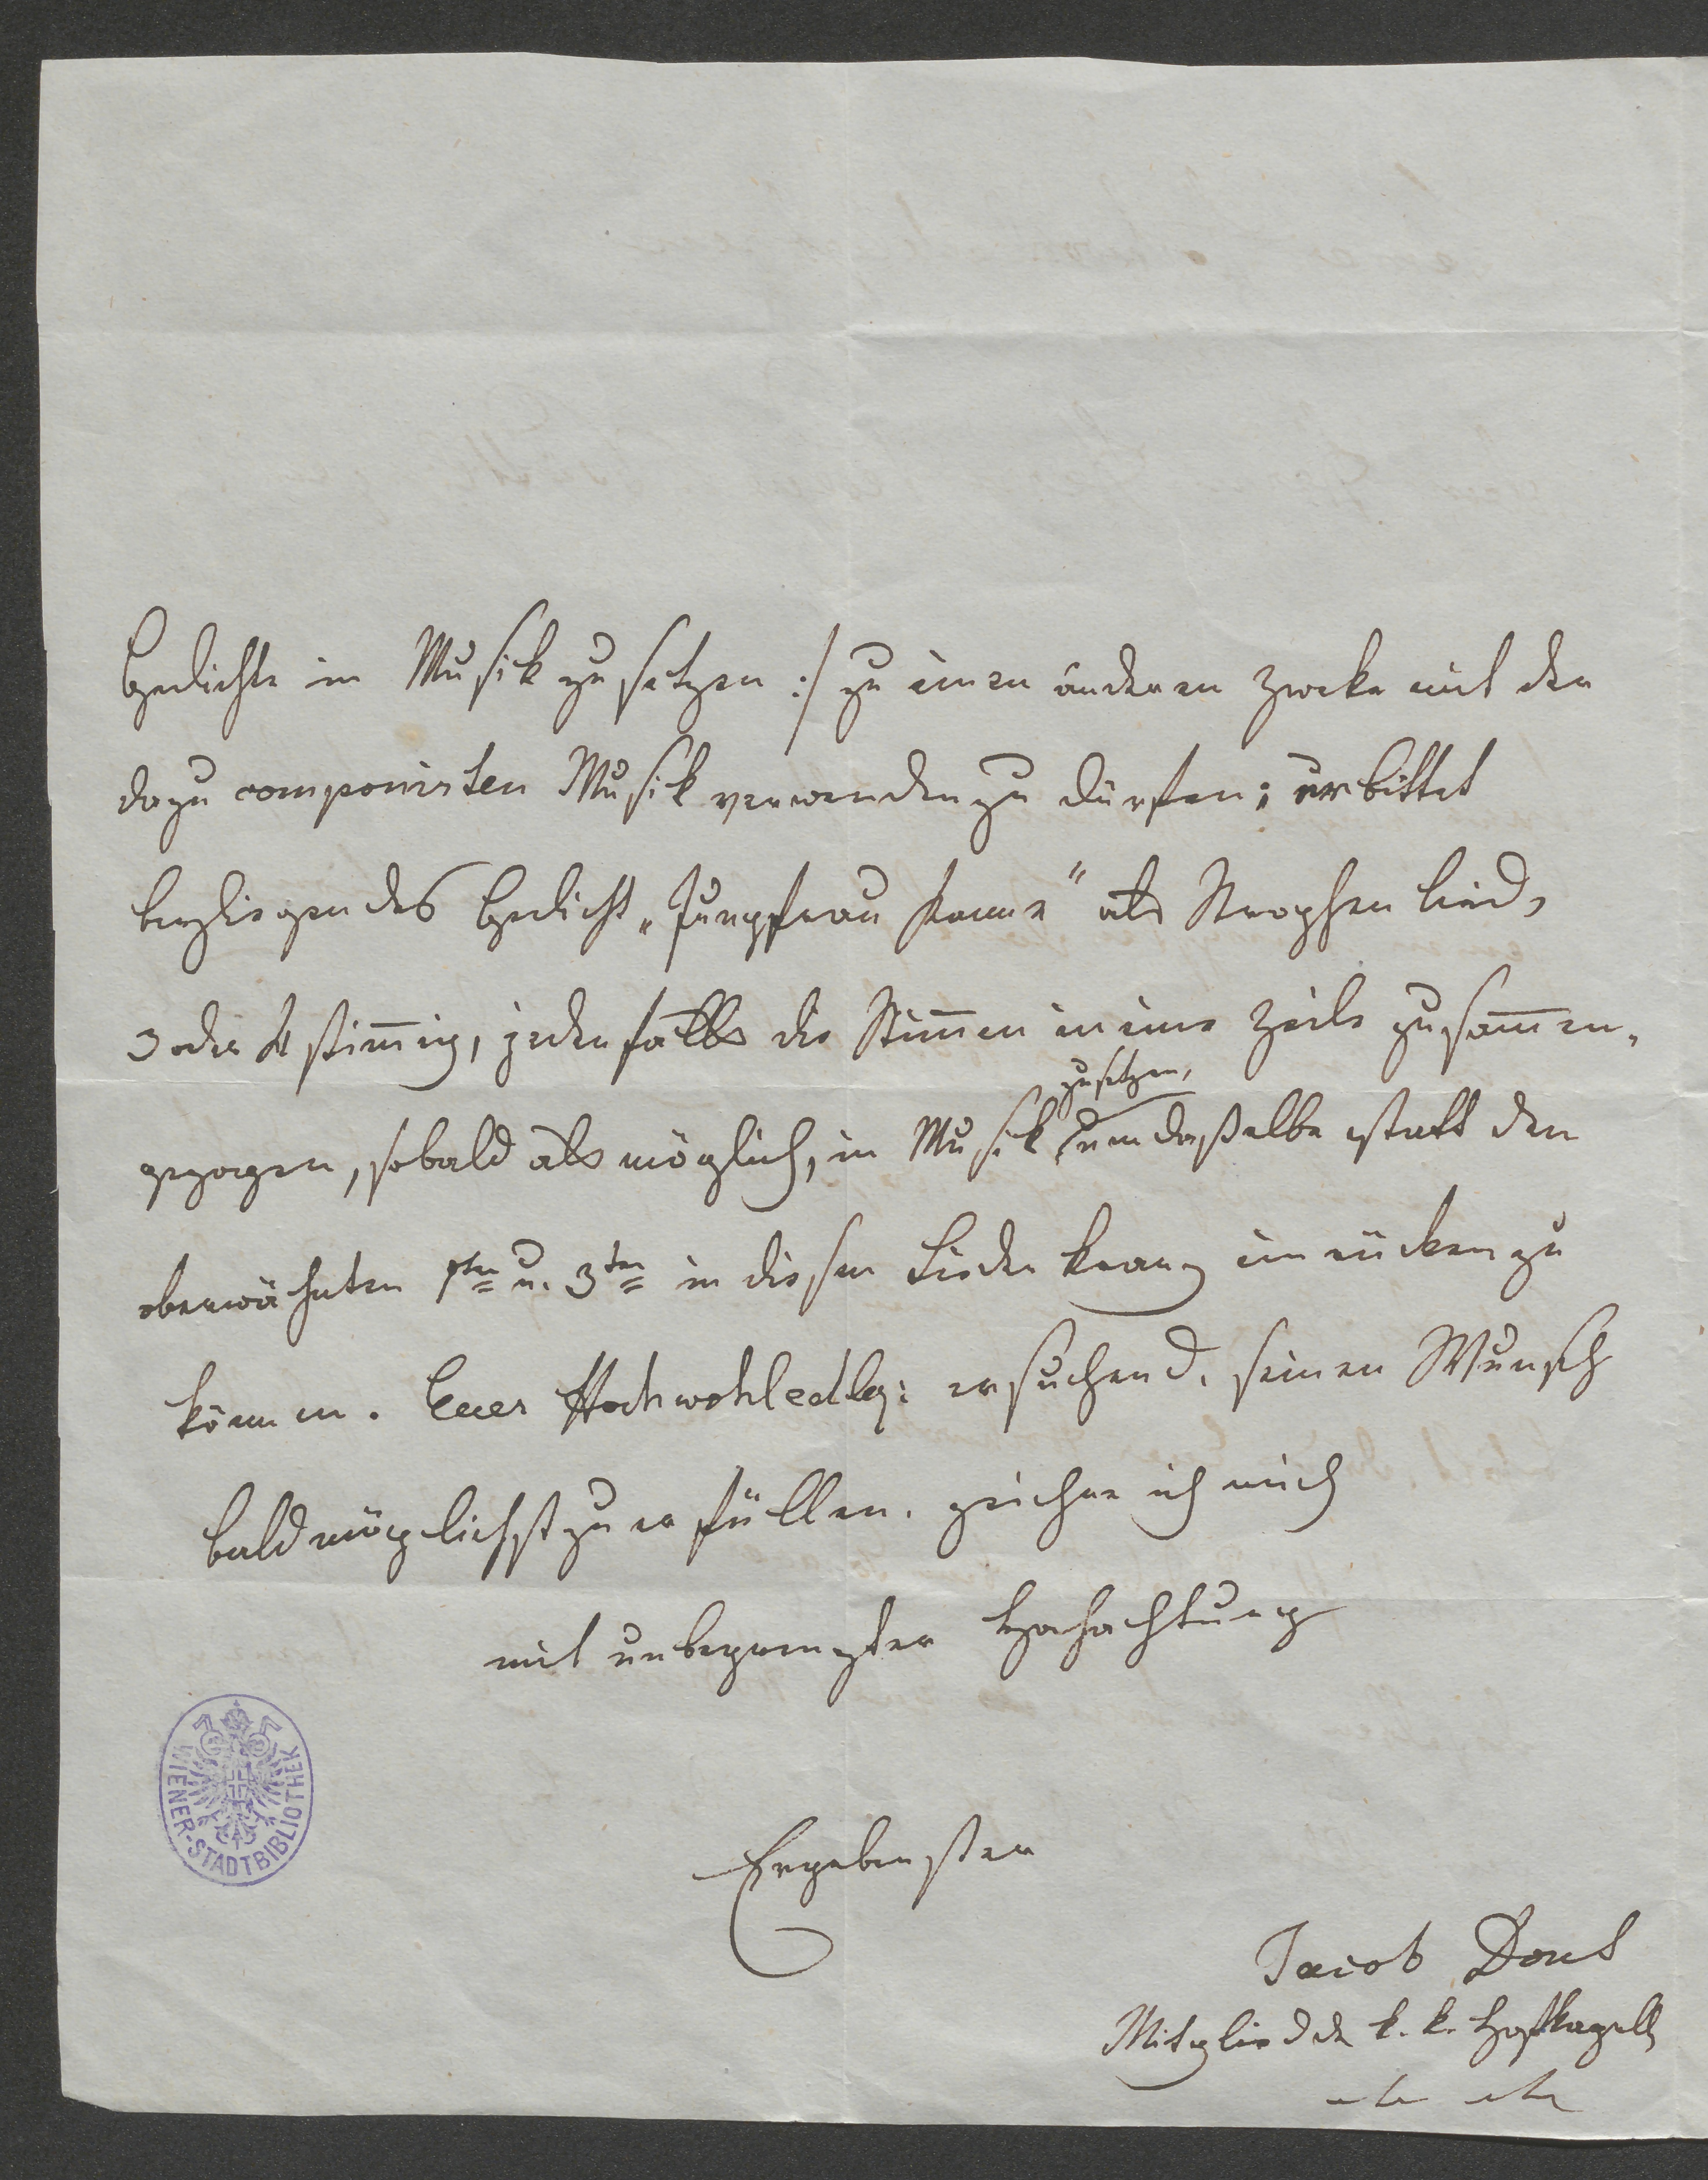 Gedichte in Musik zu setzen :/ zu einen anderen Zwecke mit der
dazu componirten Musik verwenden zu dürfen; er bittet
beyliegendes Gedicht „Jungfrau " als Strophenlied,
3 oder 4 stim̄ig, jedenfalls die Stim̄en in eine Zeile zusam̄en-
gezogen, sobald als möglich, in Musik zusetzen, um daßelbe statt den
oberwähnten 1ten u. 3ten in diesen Liederkranz einrücken zu
können. Euer Hochwohledlg: ersuchend, seinen Wunsch
baldmöglichst zu erfüllen, zeichne ich mich
mit unbegrenzter Hochachtung
Ergebenster
Jacob Dont
Mitglied der k. k. Hofkapelle
etc etc
WIENER-STADTBIBLIOTHEK